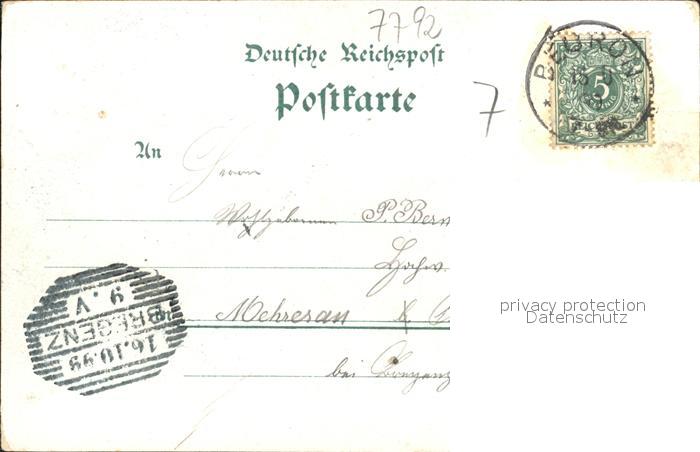 7792
Deutsche Reichspost
Postkarte
7
BEURON
5
An
Herrn
Wohlgeboren P. Bern
Hochw.
in Mehrerau
bei Bregenz
BREGENZ
16.10.99
9.V
privacy protection
Datenschutz